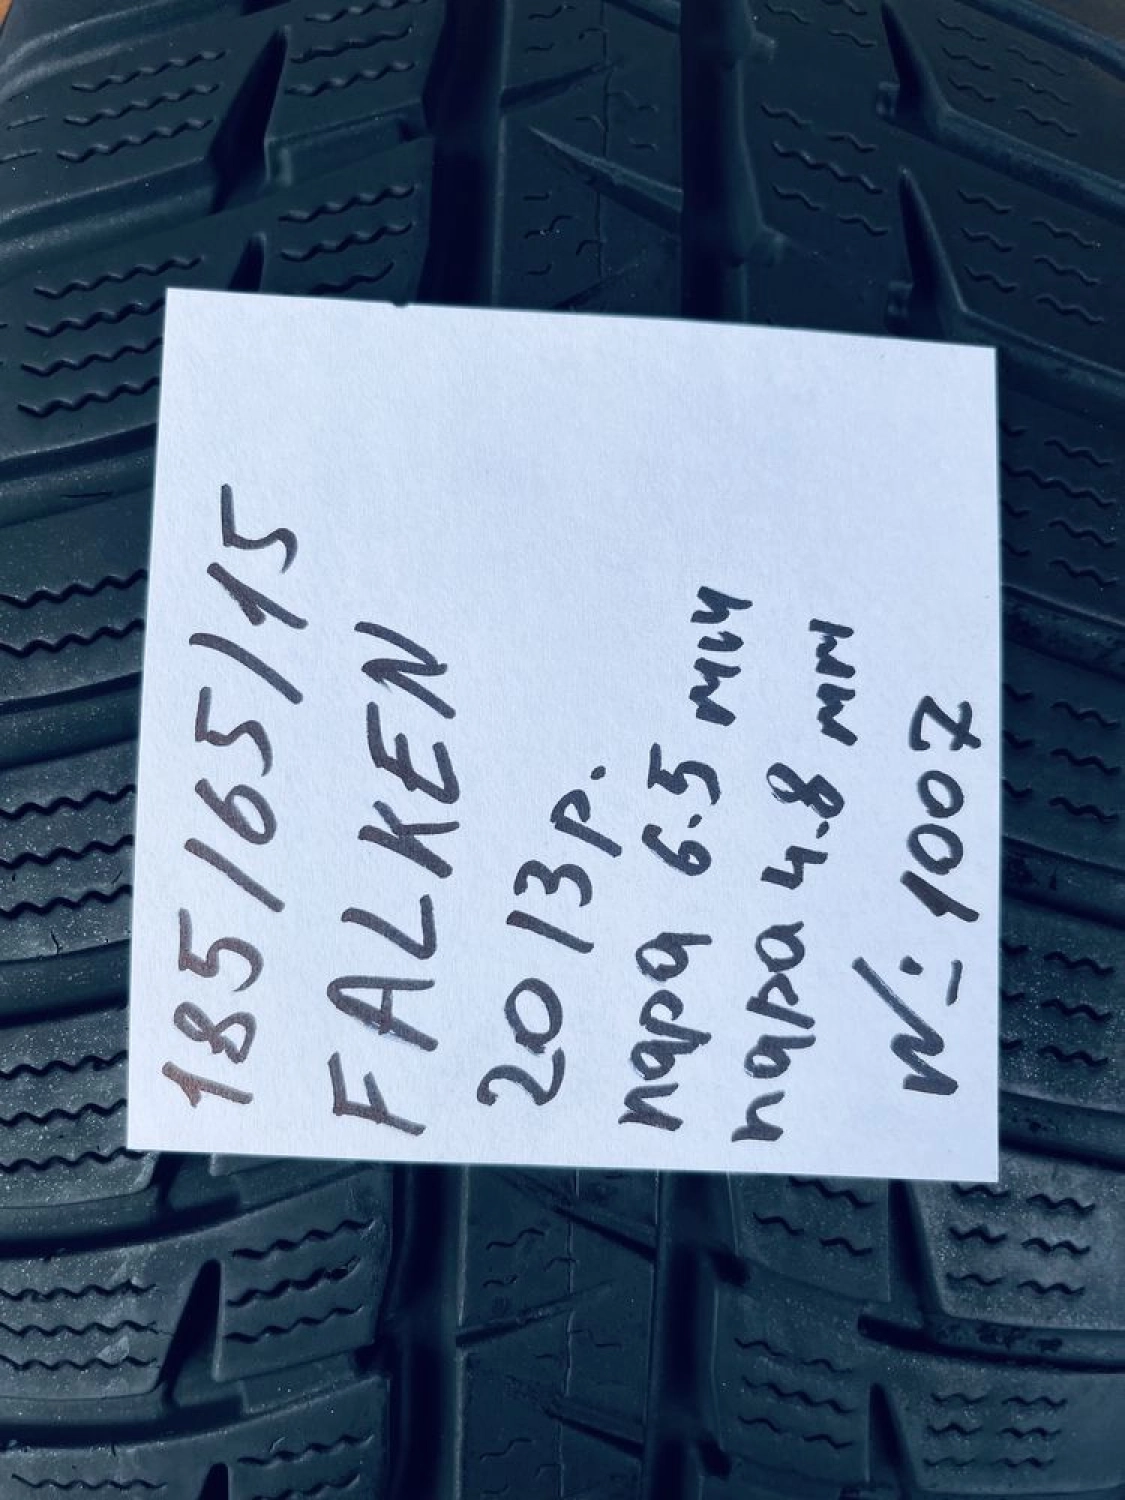 185/65/15
FALKEN
2013р.
пара 6.5 мм
пара 4.8 мм
№ 1007